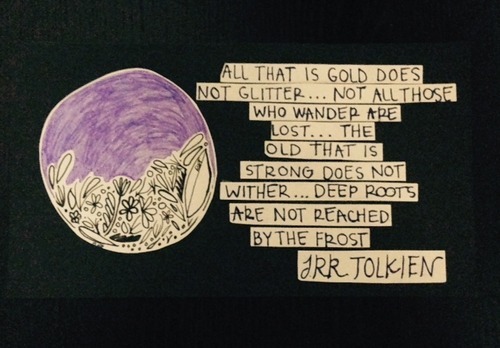 ALL THAT IS GOLD DOES
NOT GLITTER... NOT ALL THOSE
WHO WANDER ARE
LOST... THE
OLD THAT IS
STRONG DOES NOT
WITHER... DEEP ROOTS
ARE NOT REACHED
BY THE FROST
JRR TOLKIEN